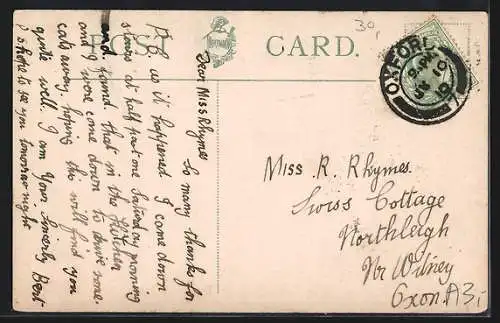 POST CARD.
30,
OXFORD
9. PM
10
Dear Miss Rhymes
So many thanks for
P.C. as it happened I came down
stairs at half past one Saturday morning
and found that in the Kitchen
and I were come down to drive some
cats away. hoping this will find you
quite well. I am Yours Sincerely Bert
I hope to see you tomorrow night
Miss R. Rhymes.
Swiss Cottage
Northleigh
Nr Witney
Oxon A3,-